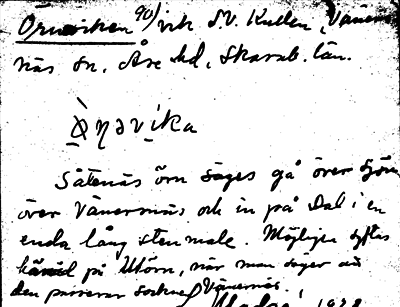 Örnviken 90/ vik S.V. Kullen, Väners
näs sn, Åse hd, Skarab. län.
Sätenäs örn säges gå över sjön
över Vänersnäs och in på Dal i en
enda lång stenmale. Möjligen syftas
på Utörn, när man säger att
den passerar socknen Vänersnäs.